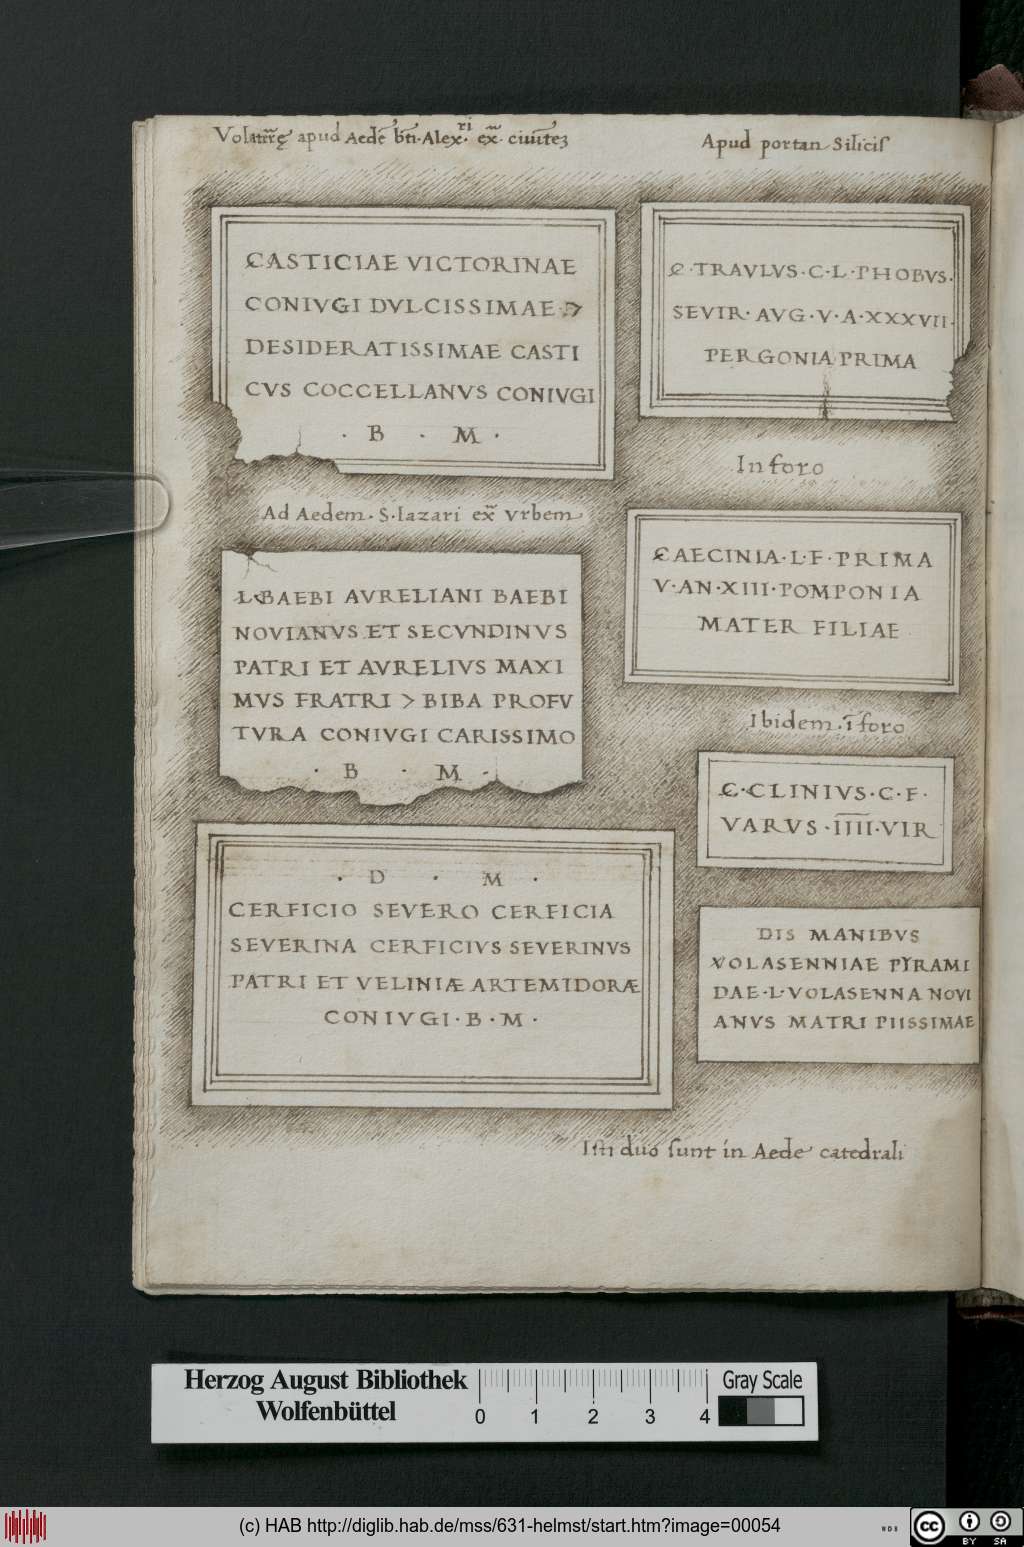 Volaterrę apud Aedē bti. Alexri. ex. ciuitez
CASTICIAE VICTORINAE
CONIVGI DVLCISSIMAE
DESIDERATISSIMAE CASTI
CVS COCCELLANVS CONIVGI
· B · M ·
Ad Aedem · S · lazari ex vrbem
L BAEBI AVRELIANI BAEBI
NOVIANVS ET SECVNDINVS
PATRI ET AVRELIVS MAXI
MVS FRATRI > BIBA PROFV
TVRA CONIVGI CARISSIMO
· B · M ·
· D · M ·
CERFICIO SEVERO CERFICIA
SEVERINA CERFICIVS SEVERINVS
PATRI ET VELINIÆ ARTEMIDORÆ
CONIVGI · B · M ·
Apud portan Silicis
C · TRAVLVS · C · L · PHOBVS ·
SEVIR · AVG · V · A · XXXVII ·
PERGONIA PRIMA
In foro
CAECINIA · L · F · PRIMA
V · AN · XIII · POMPONIA
MATER FILIAE
Ibidem · ī foro
C · CLINIVS · C · F ·
VARVS · IIII · VIR
DIS MANIBVS
VOLASENNIAE PYRAMI
DAE · L · VOLASENNA NOVI
ANVS MATRI PIISSIMAE
Isti duo sunt in Aede catedrali
Herzog August Bibliothek
Wolfenbüttel
0 1 2 3 4
Gray Scale
(c) HAB http://diglib.hab.de/mss/631-helmst/start.htm?image=00054
WDB
cc
BY SA